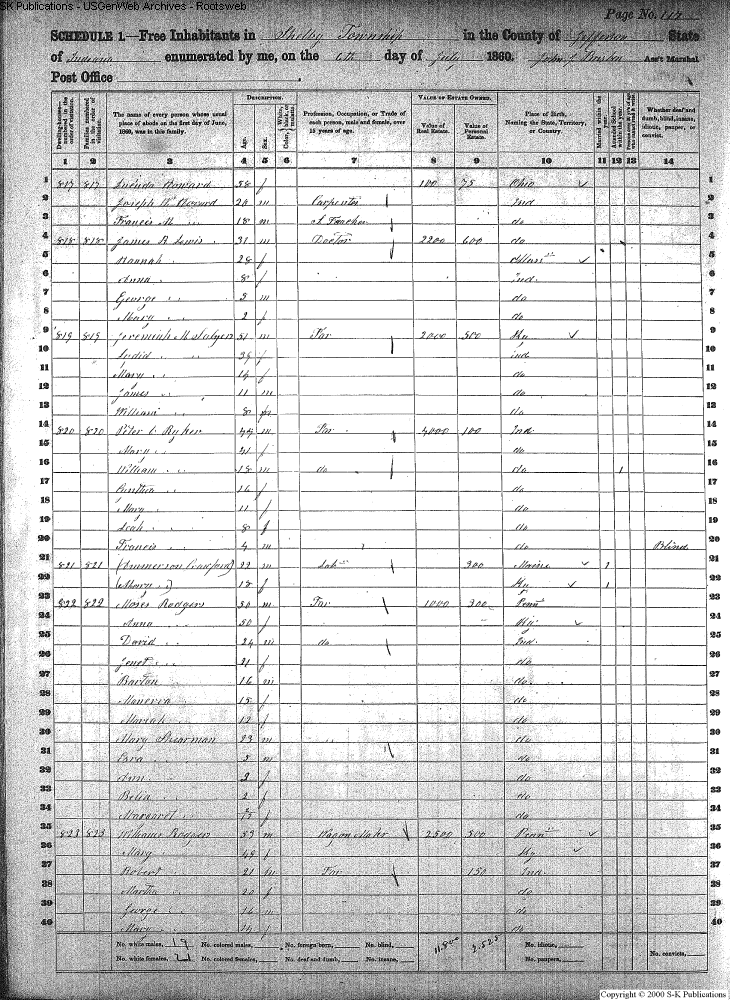 SK Publications - USGenWeb Archives - Rootsweb
Page No. 117
SCHEDULE 1.—Free Inhabitants in Shelby Township in the County of Jefferson State
of Indiana enumerated by me, on the 6th day of July 1860. John J. Ass't Marshal
Post Office
Dwelling-houses— numbered in the order of visitation.
Families numbered in the order of visitation.
The name of every person whose usual place of abode on the first day of June, 1860, was in this family.
DESCRIPTION.
Age.
Sex.
Color, White, black, or mulatto.
Profession, Occupation, or Trade of each person, male and female, over 15 years of age.
VALUE OF ESTATE OWNED.
Value of Real Estate.
Value of Personal Estate.
Place of Birth, Naming the State, Territory, or Country.
Married within the year.
Attended School within the year.
Whether deaf and dumb, blind, insane, idiotic, pauper, or convict.
1 2 3 4 5 6 7 8 9 10 11 12 13 14
1 817 817 Howard 58 f 100 75 Ohio 1
2 Joseph W. Howard 20 m Carpenter Ind 2
3 Francis M 18 m S. Teacher do 3
4 818 818 James R Lewis 31 m Doctor 2200 600 do 4
5 Hannah 28 f 5
6 Anna 8 f Ind. 6
7 George 3 m do 7
8 Mary 2 f do 8
9 819 819 Jeremiah M 51 m Far 2000 500 Ky 9
10 f Ind 10
11 Mary 14 f do 11
12 James 11 m do 12
13 William 8 do 13
14 820 820 Peter C Ryker 49 m Far 4000 100 Ind. 14
15 Mary 41 f do 15
16 William 18 m do do 1 16
17 Cintha 16 f do 17
18 Mary 11 f do 18
19 Leah 8 f do 19
20 Francis 4 m do Blind 20
21 821 821 (Ammerson Crawford) 22 m Lab 300 Maine 1 21
22 (Mary) 18 f Ky 1 22
23 822 822 Moses Rodgers 50 m Far 1000 300 Penn 23
24 Anna 50 f Ky. 24
25 David 24 m do Ind. 25
26 Jenet 21 f do 26
27 Barton 16 m do 27
28 Manerva 15 f do 28
29 Mariah 12 f do 29
30 Mary Shearman 23 m do 30
31 Ezra 3 m do 31
32 Ann f do 32
33 2 f do 33
34 Margaret f do 34
35 823 823 Rodgers 53 m Wagon Maker 2500 500 Penn 35
36 Mary 49 f Ky 36
37 Robert 21 m Far 150 Ind. 37
38 Martha 20 f do 38
39 George 16 m do 39
40 Mary 14 f do 40
No. white males, 19 No. colored males, No. foreign born, No. blind, 11,800 2,525 No. idiotic,
No. white females, No. colored females, No. deaf and dumb, No. insane, No. paupers, No. convicts,
Copyright © 2000 S-K Publications